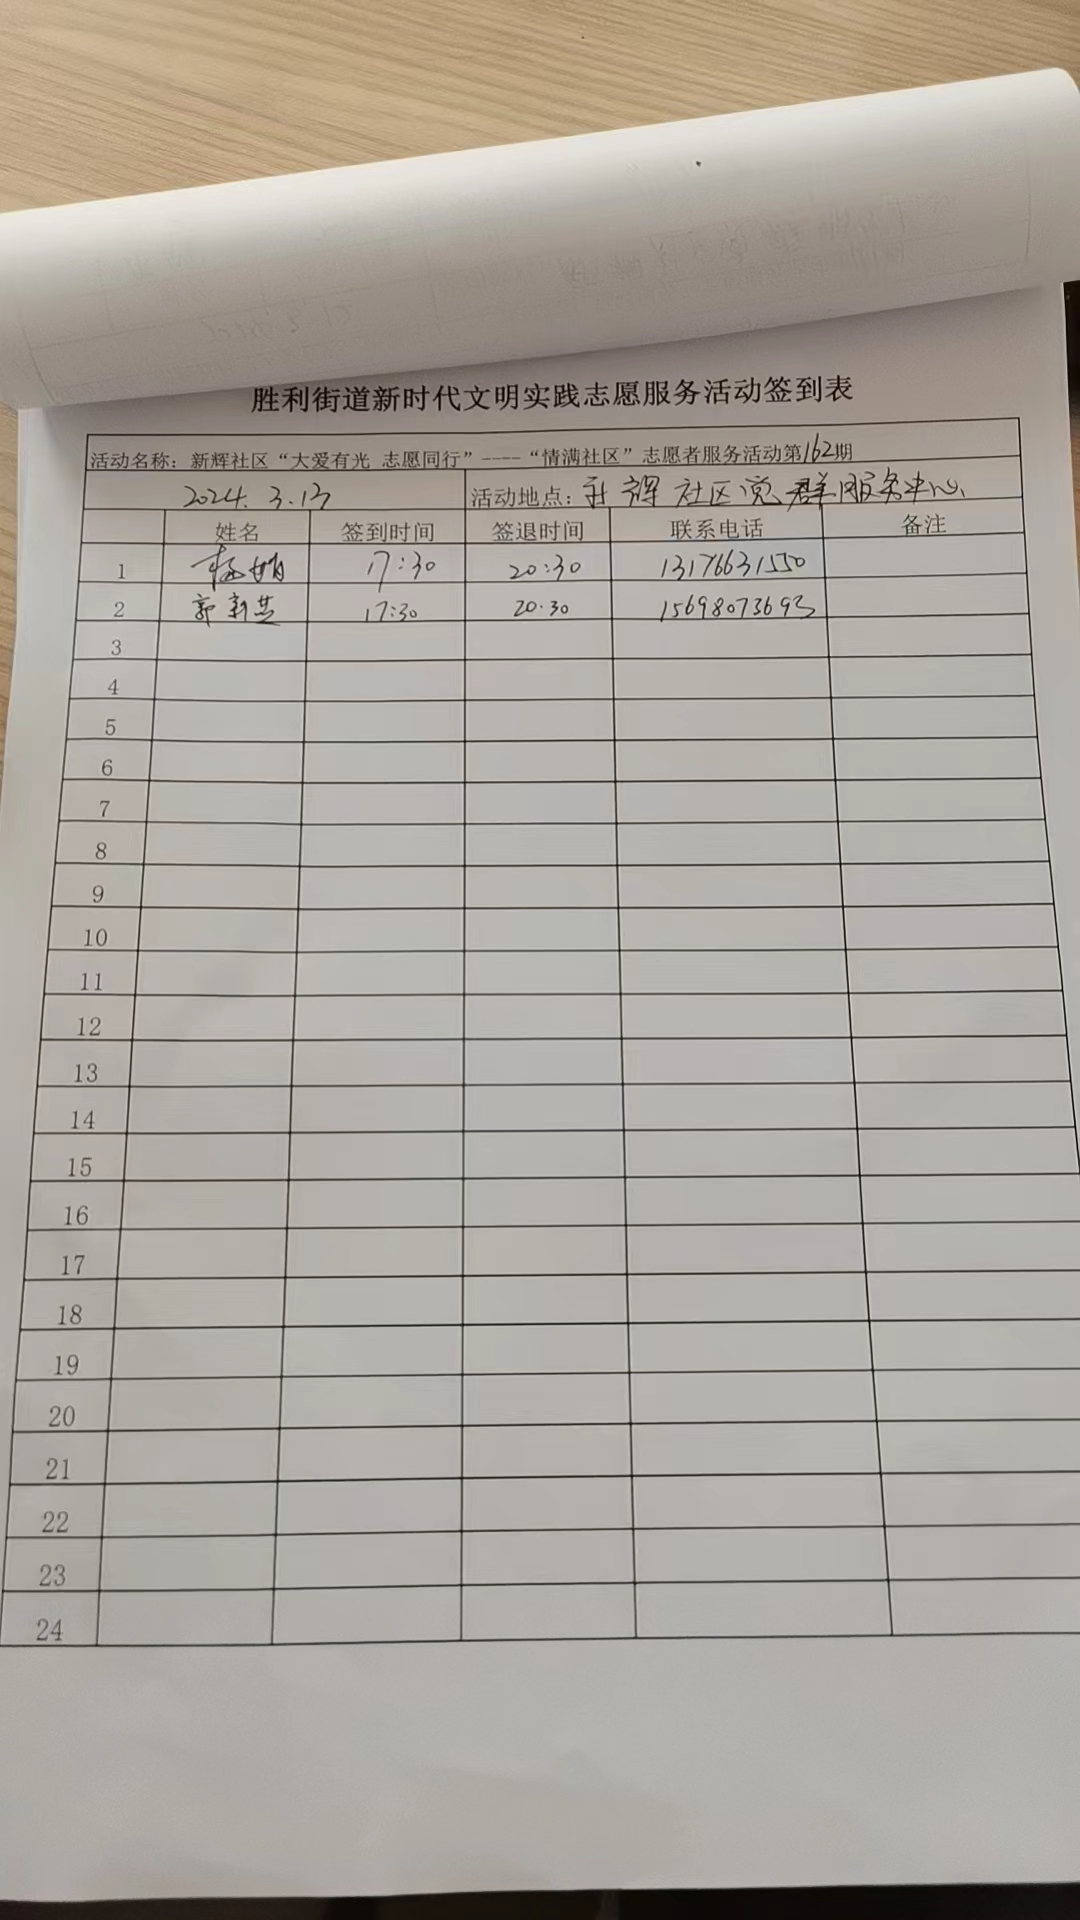 胜利街道新时代文明实践志愿服务活动签到表
活动名称：新辉社区“大爱有光 志愿同行”----“情满社区”志愿者服务活动第162期
2024.3.13 活动地点：新辉社区党群服务中心
姓名 签到时间 签退时间 联系电话 备注
1 杨娟 17:30 20:30 13176631550
2 郭新燕 17:30 20:30 15698073693
3
4
5
6
7
8
9
10
11
12
13
14
15
16
17
18
19
20
21
22
23
24